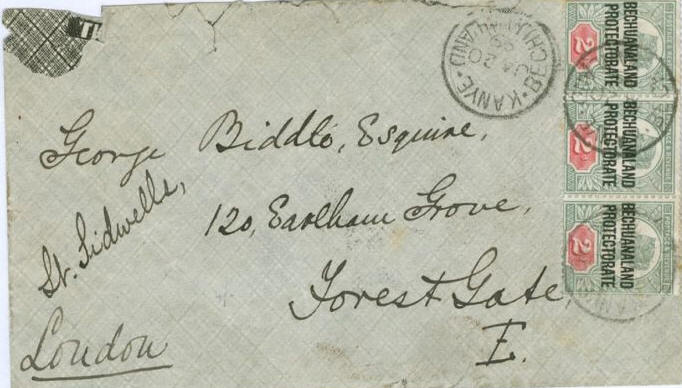 KANYE · BECHUANALAND
JA 20
99
George Biddle, Esquire,
St. Sidwells,
120, Earlham Grove,
Forest Gate
E.
London
BECHUANALAND
PROTECTORATE
2d
BECHUANALAND
PROTECTORATE
2d
BECHUANALAND
PROTECTORATE
2d